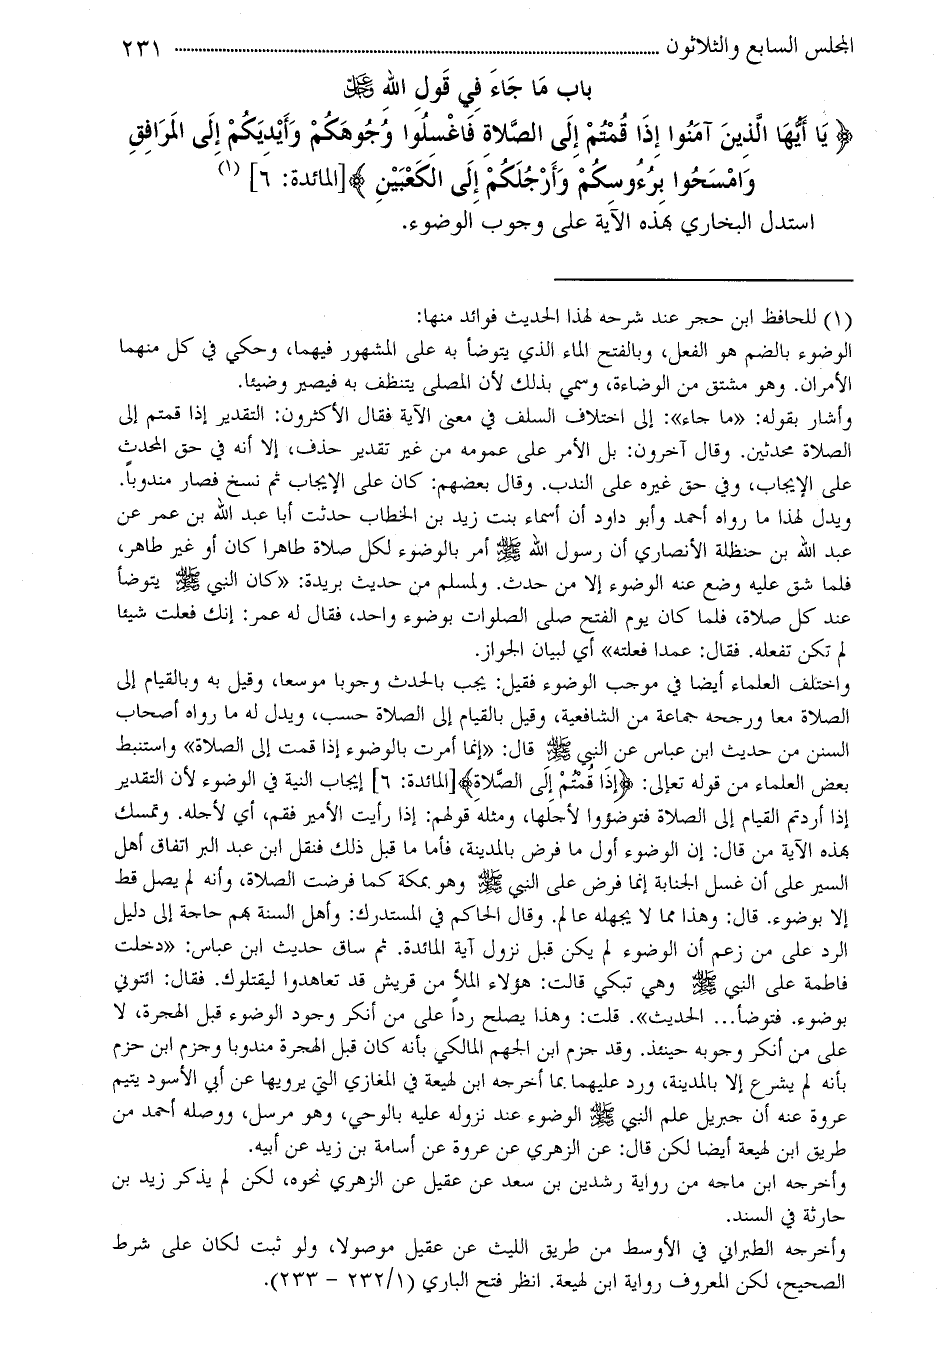 المجلس السابع والثلاثون ........ ٢٣١
باب مَا جَاءَ فِي قَولِ اللهِ ﷻ
﴿ يَا أَيُّهَا الَّذِينَ آمَنُوا إِذَا قُمْتُمْ إِلَى الصَّلاةِ فَاغْسلُوا وُجُوهَكُمْ وَأَيْدِيَكُمْ إِلَى المَرَافِقِ
وَامْسَحُوا بِرُءُوسِكُمْ وَأَرْجُلَكُمْ إِلَى الكَعْبَيْنِ ﴾[المائدة: ٦] (١)
استدل البخاري بهذه الآية على وجوب الوضوء.
(١) للحافظ ابن حجر عند شرحه لهذا الحديث فوائد منها:
الوضوء بالضم هو الفعل، وبالفتح الماء الذي يتوضأ به على المشهور فيهما، وحكي في كل منهما
الأمران. وهو مشتق من الوضاءة، وسمي بذلك لأن المصلى يتنظف به فيصير وضيئا.
وأشار بقوله: «ما جاء»: إلى اختلاف السلف في معنى الآية فقال الأكثرون: التقدير إذا قمتم إلى
الصلاة محدثين. وقال آخرون: بل الأمر على عمومه من غير تقدير حذف، إلا أنه في حق المحدث
على الإيجاب، وفي حق غيره على الندب. وقال بعضهم: كان على الإيجاب ثم نسخ فصار مندوباً.
ويدل لهذا ما رواه أحمد وأبو داود أن أسماء بنت زيد بن الخطاب حدثت أبا عبد الله بن عمر عن
عبد الله بن حنظلة الأنصاري أن رسول الله ﷺ أمر بالوضوء لكل صلاة طاهرا كان أو غير طاهر،
فلما شق عليه وضع عنه الوضوء إلا من حدث. ولمسلم من حديث بريدة: «كان النبي ﷺ يتوضأ
عند كل صلاة، فلما كان يوم الفتح صلى الصلوات بوضوء واحد، فقال له عمر: إنك فعلت شيئا
لم تكن تفعله. فقال: عمدا فعلته» أي لبيان الجواز.
واختلف العلماء أيضا في موجب الوضوء فقيل: يجب بالحدث وجوبا موسعا، وقيل به وبالقيام إلى
الصلاة معا ورجحه جماعة من الشافعية، وقيل بالقيام إلى الصلاة حسب، ويدل له ما رواه أصحاب
السنن من حديث ابن عباس عن النبي ﷺ قال: «إنما أمرت بالوضوء إذا قمت إلى الصلاة» واستنبط
بعض العلماء من قوله تعالى: ﴿إِذَا قُمْتُمْ إِلَى الصَّلاةِ﴾[المائدة: ٦] إيجاب النية في الوضوء لأن التقدير
إذا أردتم القيام إلى الصلاة فتوضؤوا لأجلها، ومثله قولهم: إذا رأيت الأمير فقم، أي لأجله. وتمسك
بهذه الآية من قال: إن الوضوء أول ما فرض بالمدينة، فأما ما قبل ذلك فنقل ابن عبد البر اتفاق أهل
السير على أن غسل الجنابة إنما فرض على النبي ﷺ وهو بمكة كما فرضت الصلاة، وأنه لم يصل قط
إلا بوضوء. قال: وهذا مما لا يجهله عالم. وقال الحاكم في المستدرك: وأهل السنة بهم حاجة إلى دليل
الرد على من زعم أن الوضوء لم يكن قبل نزول آية المائدة. ثم ساق حديث ابن عباس: «دخلت
فاطمة على النبي ﷺ وهي تبكي قالت: هؤلاء الملأ من قريش قد تعاهدوا ليقتلوك. فقال: ائتوني
بوضوء. فتوضأ... الحديث». قلت: وهذا يصلح رداً على من أنكر وجود الوضوء قبل الهجرة، لا
على من أنكر وجوبه حينئذ. وقد جزم ابن الجهم المالكي بأنه كان قبل الهجرة مندوبا وجزم ابن حزم
بأنه لم يشرع إلا بالمدينة، ورد عليهما بما أخرجه ابن لهيعة في المغازي التي يرويها عن أبي الأسود يتيم
عروة عنه أن جبريل علم النبي ﷺ الوضوء عند نزوله عليه بالوحي، وهو مرسل، ووصله أحمد من
طريق ابن لهيعة أيضا لكن قال: عن الزهري عن عروة عن أسامة بن زيد عن أبيه.
وأخرجه ابن ماجه من رواية رشدين بن سعد عن عقيل عن الزهري نحوه، لكن لم يذكر زيد بن
حارثة في السند.
وأخرجه الطبراني في الأوسط من طريق الليث عن عقيل موصولا، ولو ثبت لكان على شرط
الصحيح، لكن المعروف رواية ابن لهيعة. انظر فتح الباري (١/ ٢٣٢ – ٢٣٣).